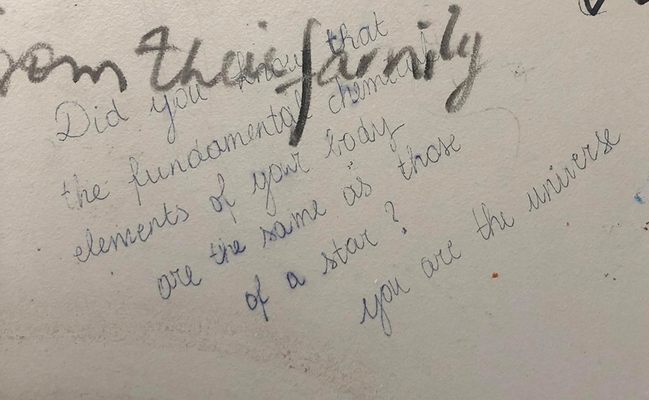 from their family
Did you know that
the fundamental chemical
elements of your body
are the same as those
of a star?
you are the universe